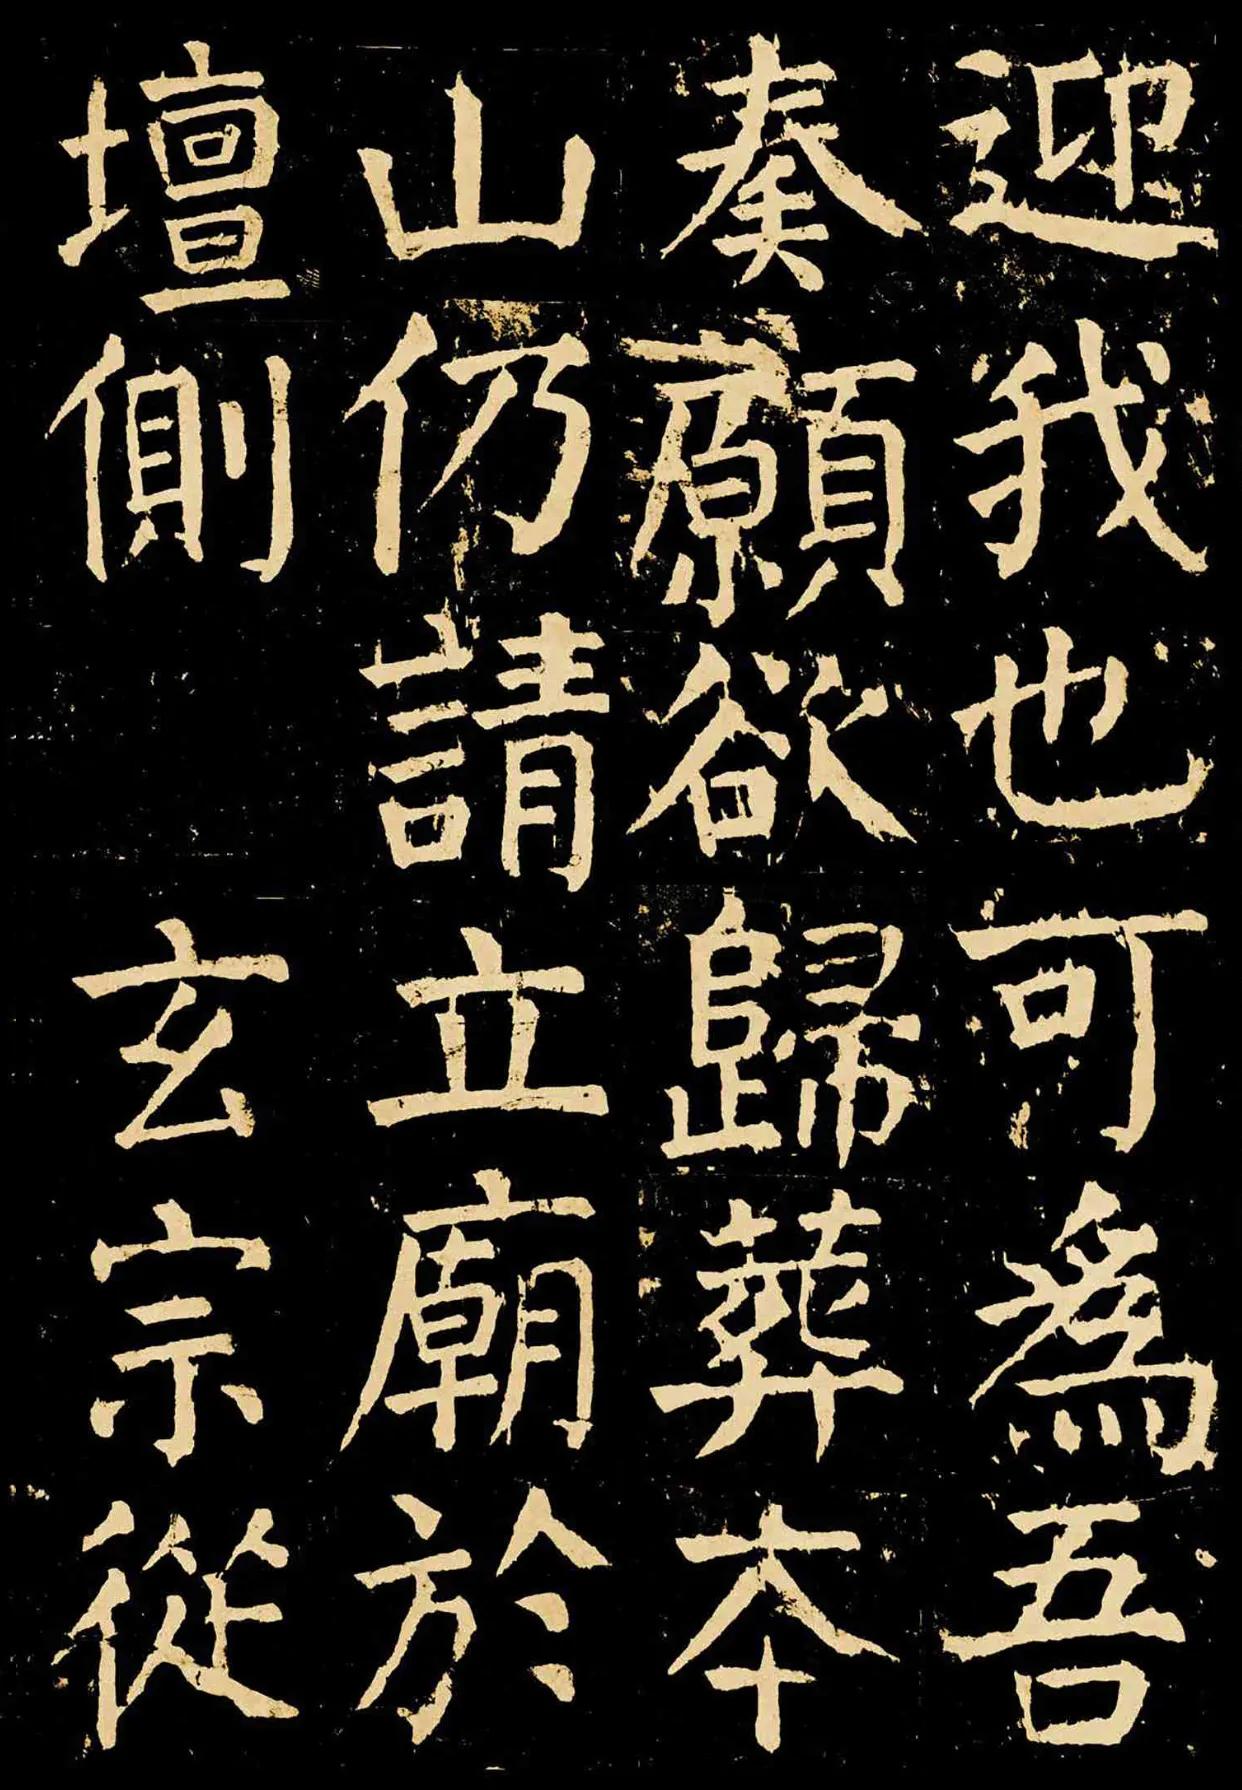 迎我也可為吾
奏願欲歸葬本
山仍請立廟於
壇側玄宗從